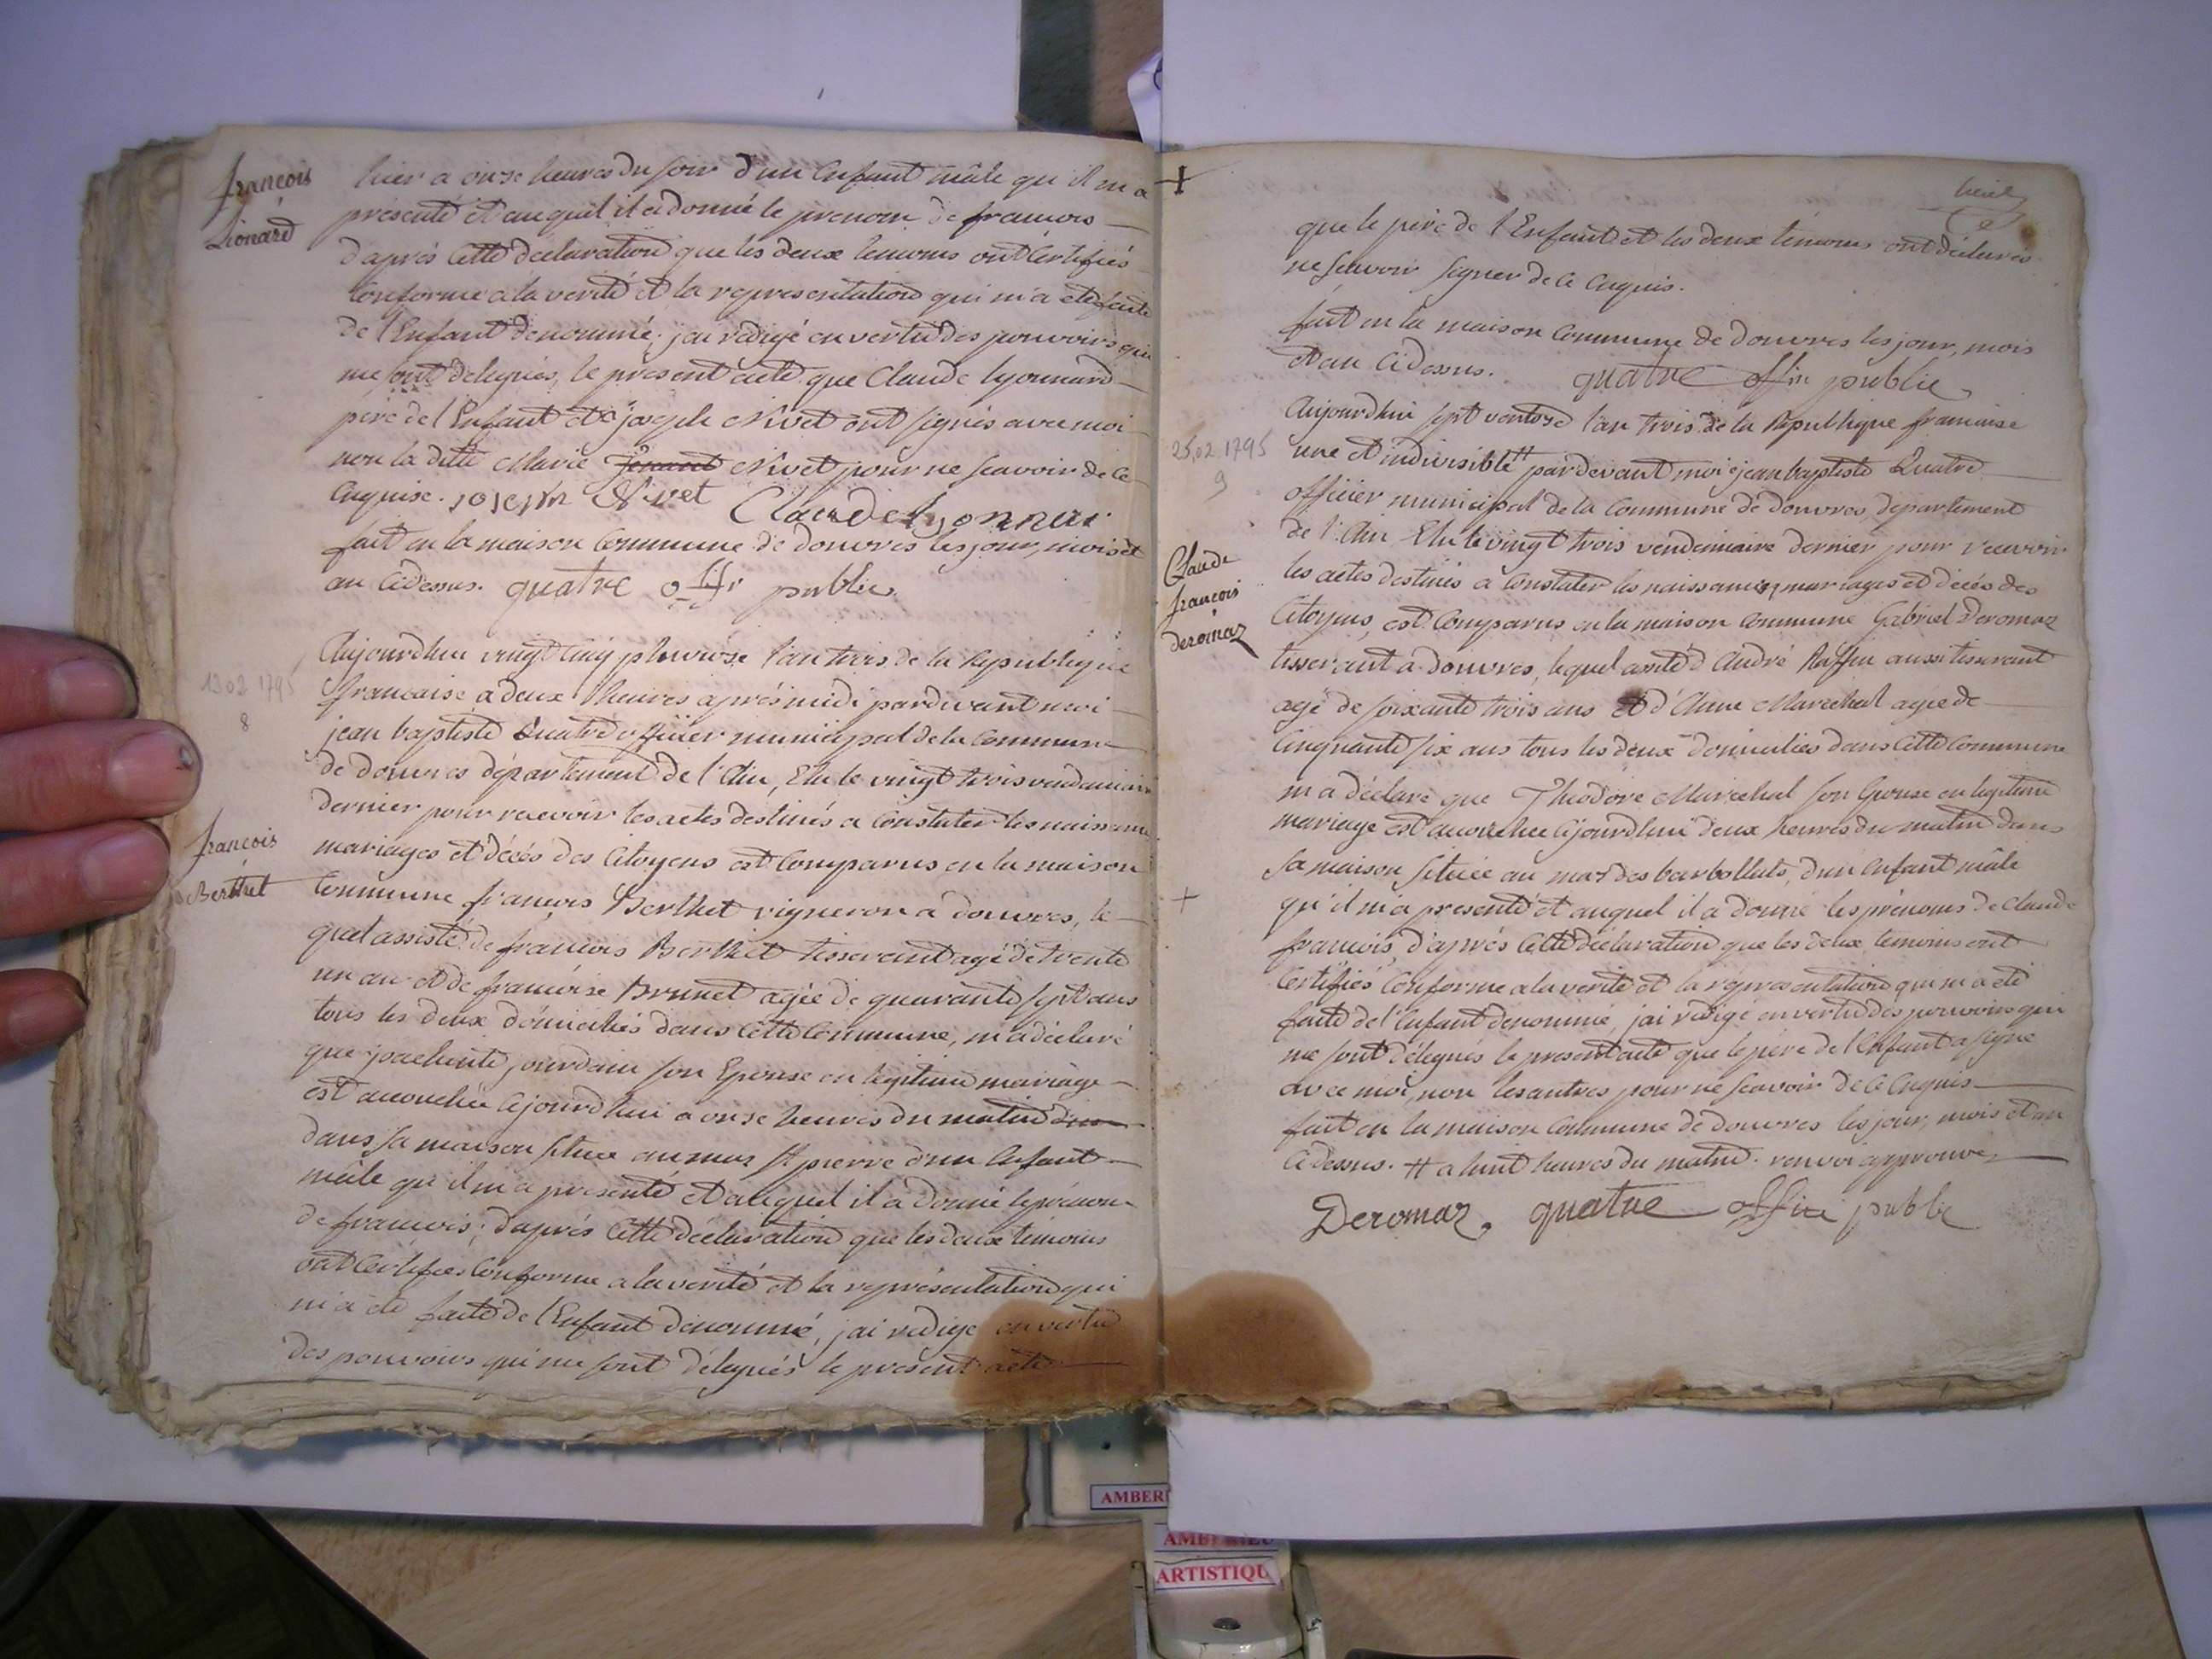 françois
Lionard
hier a onze heures du soir d'un Enfant mâle qu'il m'a
présenté et auquel il a donné le prenom de francois
d'aprés Cette declaration que les deux temoins ont Certifiés
Conforme a la verité et la representation qui m'a eté faite
de l'Enfant denommé, j'ai redigé en vertu des pouvoirs qui
me sont delegués, le présent acte que Claude lyonnard
pere de l'Enfant et joseph Nivet ont signés avec moi
non la ditte Marie Nivet pour ne scavoir de ce
Enquise. joseph Nivet Claude Lyonnar
fait en la maison Commune de douvres les jour, mois et
an Cidessus. quatre offr public
13 02 1795
8
françois
Berthet
Aujourdhui vingt Cinq pluviose l'an trois de la Republique
francaise a deux heures aprés midi pardevant moi
jean baptiste Quatre officier municipal de la Commune
de douvres département de l'Ain, Elu le vingt trois vendemiaire
dernier pour recevoir les actes destinés a Constater les naissances
mariages et décés des Citoyens est Comparus en la maison
Commune francois Berthet vigneron a douvres, le
quel assisté de francois Berthet tisserant agé de trente
un an et de francoise Brunet agée de quarante sept ans
tous les deux domiciliés dans Cette Commune, m'a déclaré
que jourdain son Epouse en legitime mariage
est accouchée Cejourd'hui a onze heures du matin
dans sa maison situee au mas St pierre d'un Enfant
mâle qu'il m'a présenté et auquel il a donné le prénom
de francois; d'aprés Cette déclaration que les deux temoins
ont Certifiés Conforme a la verité et la représentation qui
m'a été faite de l'Enfant dénommé, j'ai redigé en vertu
des pouvoirs qui me sont délegués le present acte
que le pére de l'Enfant et les deux temoins ont déclarés
ne scavoir signer de ce Enquis.
fait en la maison Commune de douvres les jour, mois
et an Cidessus. quatre offr public
25.02.1795
9
Claude
françois
deromaz
Aujourdhui sept ventose l'an trois de la Republique francaise
une et indivisible # pardevant moi jean baptiste Quatre
officier municipal de la Commune de douvres, departement
de l'Ain Elu le vingt trois vendemiaire dernier pour recevoir
les actes destinés a Constater les naissances, mariages et décés des
Citoyens, est Comparus en la maison Commune Gabriel Deromaz
tisserant a douvres, lequel assité d'André Ruffin aussi tisserant
agé de soixante trois ans et d'Anne Marechal agée de
Cinquante six ans tous les deux domiciliés dans Cette Commune
m'a déclaré que Théodore Marechal son Epouse en legitime
mariage est accouchée Cejourdhui deux heures du matin dans
sa maison située au mas des barbollats, d'un Enfant mâle
qu'il m'a présenté et auquel il a donné les prénoms de Claude
francois, d'aprés Cette déclaration que les deux temoins ont
Certifiés Conforme a la verité et la répresentation qui m'a été
faite de l'Enfant dénommé, j'ai redigé en vertu des pouvoirs qui
me sont délegués le present acte que le pére de l'Enfant a signé
avec moi, non les autres pour ne scavoir de ce Enquis
fait en la maison Commune de douvres les jour, mois et an
Cidessus. # a huit heures du matin. renvoi approuvé
Deromaz. quatre offir public
AMBER
ARTISTIQU